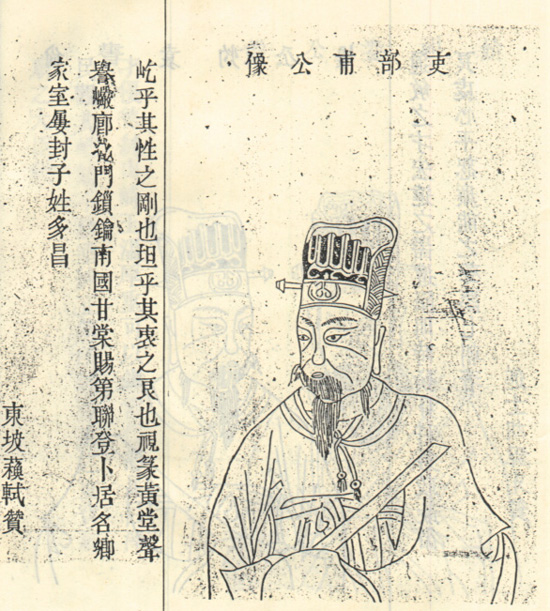 吏部甫公像
屹乎其性之剛也坦乎其衷之良也視篆黃堂聲
譽巖廊北門鎖鑰南國甘棠賜第聯登卜居名鄉
家室屢封子姓多昌
東坡蘓軾贊